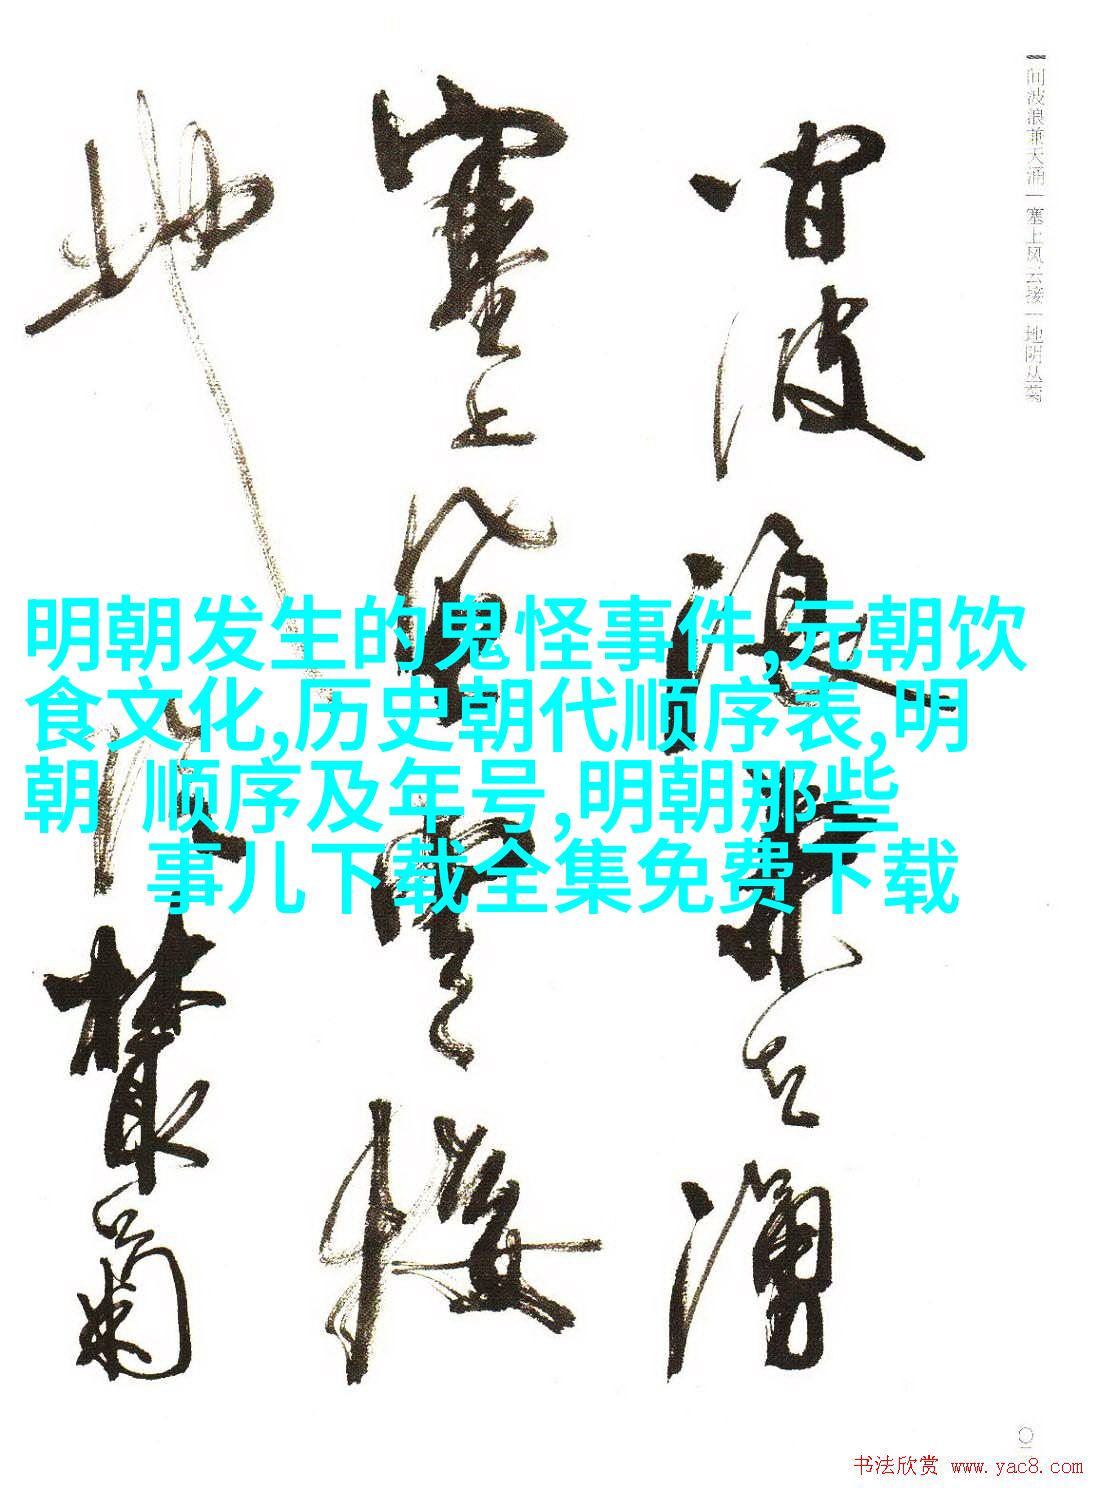 间波浪兼天涌｜塞上风云接｜地阴丛菊
间波浪兼天涌
塞上风云接
地阴丛菊
明朝发生的鬼怪事件,元朝饮
食文化,历史朝代顺序表,明
朝 顺序及年号,明朝那些
事儿下载全集免费下载
书法欣赏 www.yac8.com